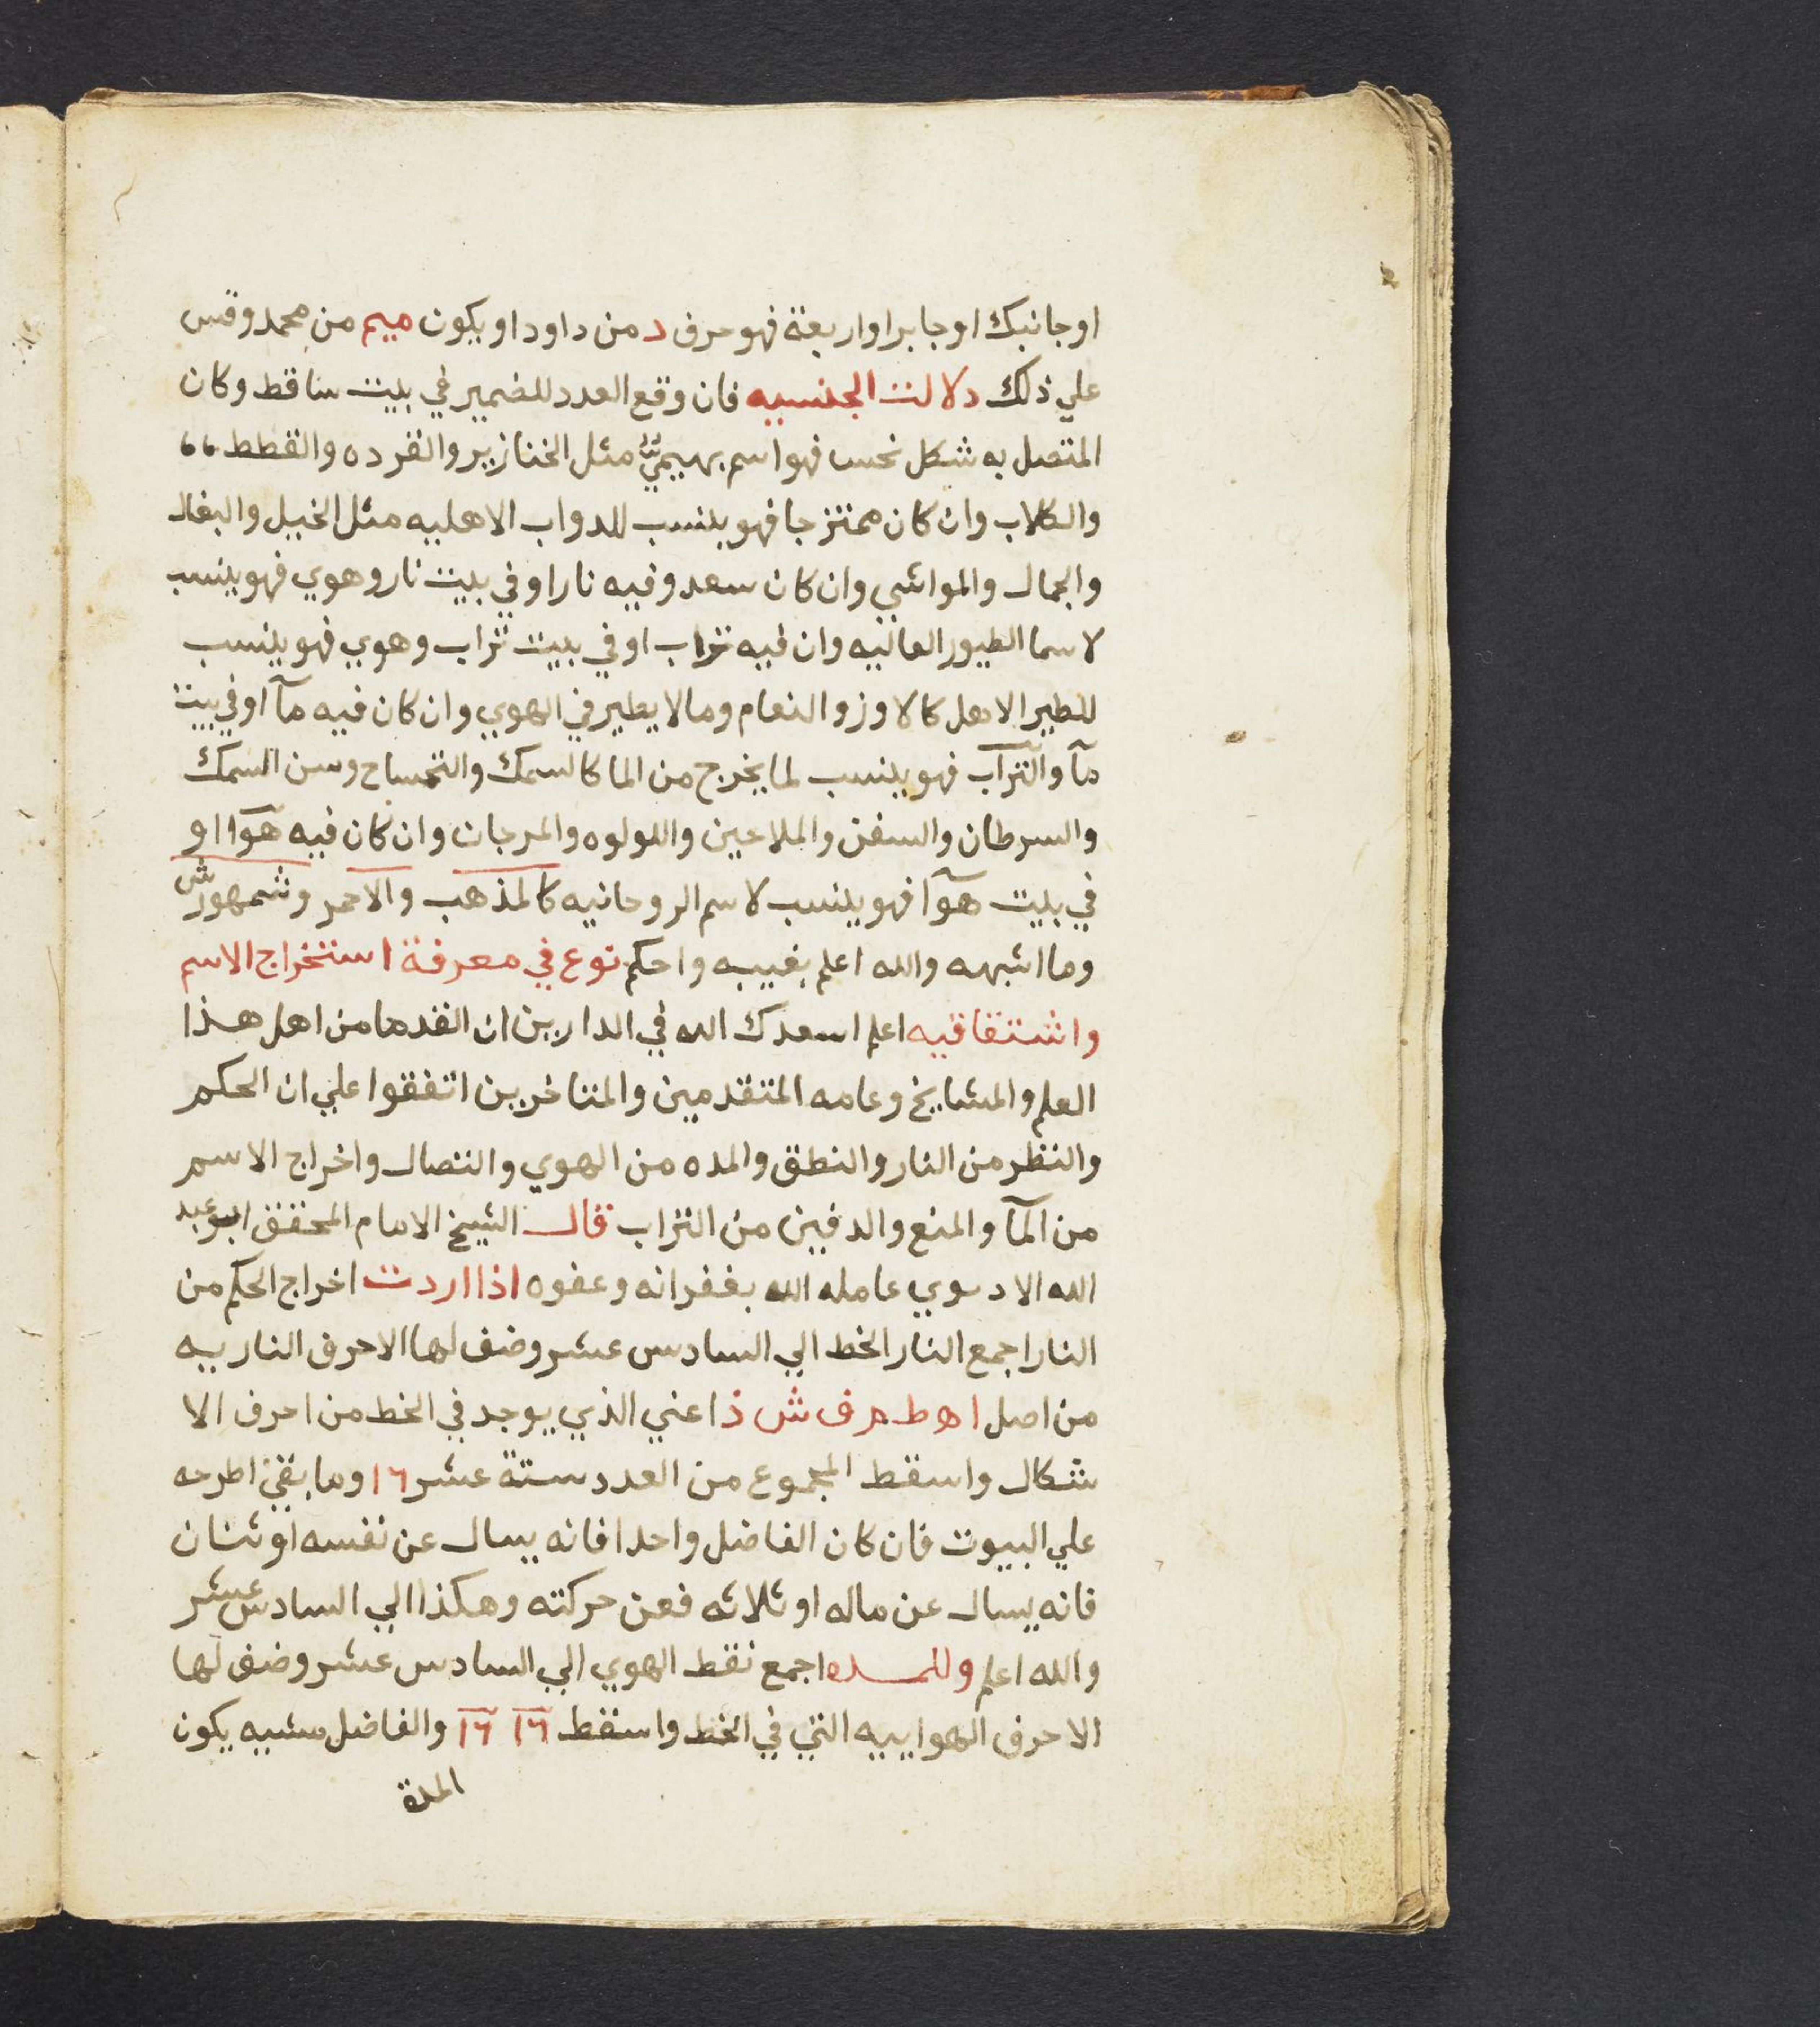 او جانبك او جابر او اربعة فهو حرف د من داود او يكون ميم من محمد وقس
علي ذلك دلالت الجنسيه فان وقع العدد للضمير في بيت ساقط وكان
المتصل به شكل نحس فهو اسم بهيمي مثل الخنازير والقرده والقطط
والكلاب وان كان ممتزجا فهو ينسب للدواب الاهليه مثل الخيل والبغال
والجمال والمواشي وان كان سعد وفيه نار او في بيت نار وهوي فهو ينسب
لاسما الطيور العاليه وان فيه تراب او في بيت تراب وهوي فهو ينسب
للطير الاهل كالاوز والنعام وما لا يطير في الهوي وان كان فيه مآ او في بيت
مآ والتراب فهو ينسب لما يخرج من الما كالسمك والتمساح وسن السمك
والسرطان والسفن والملاحين واللولوه والمرجان وان كان فيه هوآ او
في بيت هوآ فهو ينسب لاسم الروحانيه كالمذهب والاحمر وشمهورش
وما اشبهه والله اعلم بغيبه واحكم نوع في معرفة استخراج الاسم
واشتقاقيه اعلم اسعدك الله في الدارين ان القدما من اهل هذا
العلم والمشايخ وعامه المتقدمين والمتاخرين اتفقوا علي ان الحكم
والنظر من النار والنطق والمده من الهوي والنتصال واخراج الاسم
من المآ والمنع والدفين من التراب قال الشيخ الامام المحقق ابو عبد
الله الادسوي عامله الله بغفرانه وعفوه اذا اردت اخراج الحكم من
النار اجمع النار الخط الي السادس عشر وضف لها الاحرف الناريه
من اصل ا ه ط م ف ش ذ اعني الذي يوجد في الخط من احرف الا
شكال واسقط المجموع من العدد ستة عشر ١٦ وما بقي اطرحه
علي البيوت فان كان الفاضل واحدا فانه يسال عن نفسه او ثنان
فانه يسال عن ماله او ثلاثه فعن حركته وهكذا الي السادس عشر
والله اعلم وللمده اجمع نقط الهوي الي السادس عشر وضف لها
الاحرف الهواييه التي في الخط واسقط ١٦ ١٦ والفاضل سشيه يكون
المدة